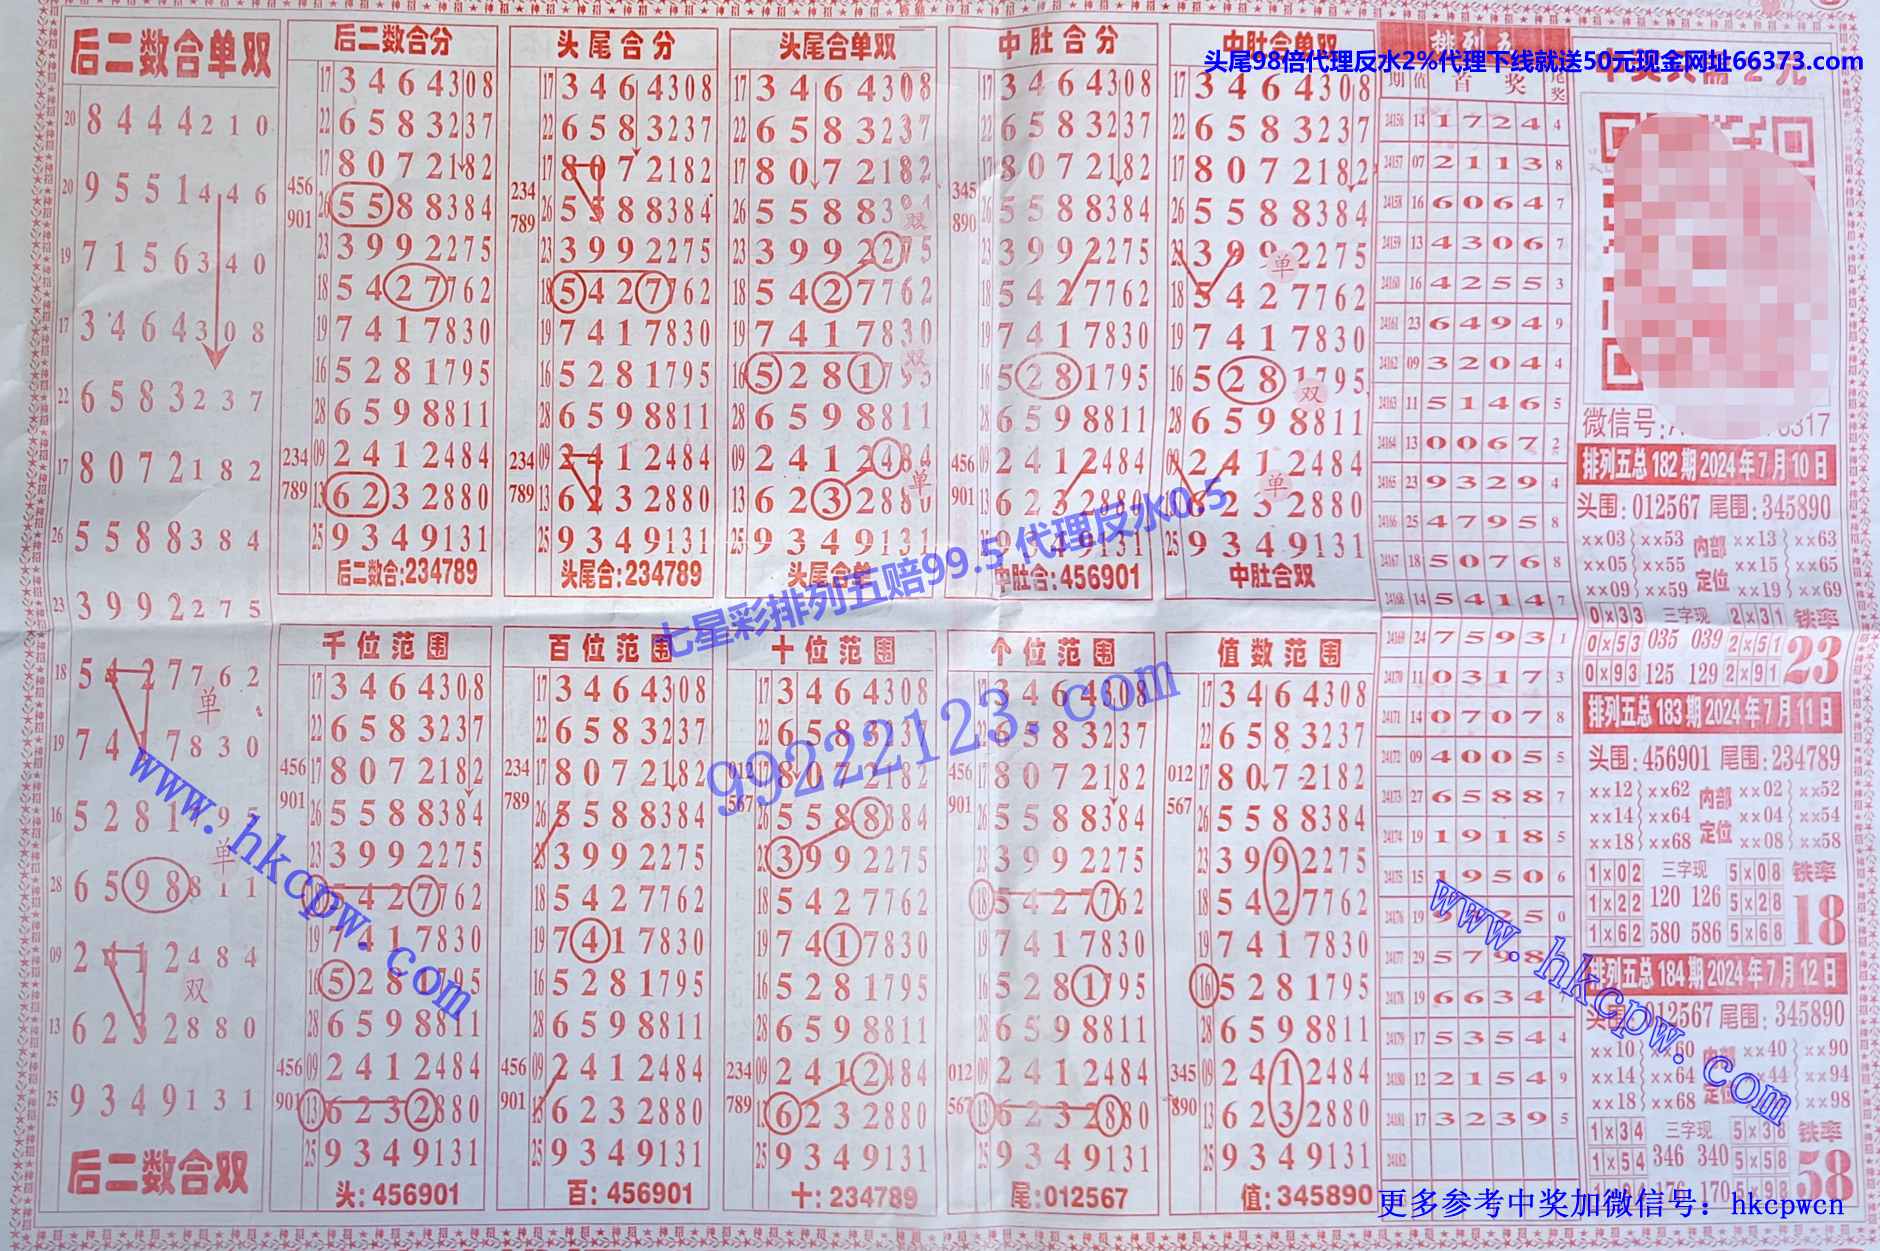 后二数合单双
20 8444210
20 9551446
19 7156340
17 3464308
22 6583237
17 8072182
26 5588384
23 3992275
18 5427762
单
19 7417830
16 52817
单
28 6598811
09 2412484
双
13 6232880
25 9349131
后二数合双
后二数合分
17 3464308
22 6583237
17 8072182
456
901
26 5588384
23 3992275
18 5427762
19 7417830
16 5281795
28 6598811
234 09 2412484
789 13 6232880
25 9349131
后二数合:234789
头尾合分
17 3464308
22 6583237
17 8072182
234
789
26 5588384
23 3992275
18 5427762
19 7417830
16 5281795
28 6598811
234 09 2412484
789 13 6232880
25 9349131
头尾合:234789
头尾合单双
17 3464308
22 6583237
17 8072182
26 5588384
双
23 3992275
18 5427762
19 7417830
双
16 5281795
28 6598811
09 2412484
单
13 6232880
25 9349131
头尾合单
中肚合分
17 3464308
22 6583237
17 8072182
345
890
26 5588384
23 3992275
18 5427762
19 7417830
16 5281795
28 6598811
456 09 2412484
901 13 6232880
25 9349131
中肚合:456901
中肚合单双
17 3464308
22 6583237
17 8072182
26 5588384
23 3992275
单
18 5427762
19 7417830
16 5281795
双
28 6598811
09 2412484
单
13 6232880
25 9349131
中肚合双
千位范围
17 3464308
22 6583237
456 17 8072182
901 26 5588384
23 3992275
18 5427762
19 7417830
16 5281795
28 6598811
456 09 2412484
901 13 6232880
25 9349131
头: 456901
百位范围
17 3464308
22 6583237
234 17 8072182
789 26 5588384
23 3992275
18 5427762
19 7417830
16 5281795
28 6598811
456 09 2412484
901 13 6232880
25 9349131
百: 456901
十位范围
17 3464308
22 6583237
012 17 8072182
567 26 5588384
23 3992275
18 5427762
19 7417830
16 5281795
28 6598811
234 09 2412484
789 13 6232880
25 9349131
十: 234789
个位范围
17 3464308
22 6583237
456 17 8072182
901 26 5588384
23 3992275
18 5427762
19 7417830
16 5281795
28 6598811
012 09 2412484
567 13 6232880
25 9349131
尾:012567
值数范围
17 3464308
22 6583237
012 17 8072182
567 26 5588384
23 3992275
18 5427762
19 7417830
16 5281795
28 6598811
345 09 2412484
890 13 6232880
25 9349131
值: 345890
排列五
期 值 首奖 尾奖
24156 14 1724 4
24157 07 2113 8
24158 16 6064 7
24159 13 4306 7
24160 16 4255 3
24161 23 6494 9
24162 09 3204 4
24163 11 5146 5
24164 13 0067 2
24165 23 9329 4
24166 25 4795 8
24167 18 5076 8
24168 14 5414 7
24169 24 7593 1
24170 11 0317 3
24171 14 0707 8
24172 09 4005 5
24173 27 6588 7
24174 19 1918 5
24175 15 1950 6
24176 19
24177 29 5798
24178 19 6634
24179 17 5354 4
24180 12 2154 9
24181 17 3239 5
24182
中奖只需2元
微信号:
317
排列五总182期2024年7月10日
头围: 012567 尾围: 345890
××03 ××53 内部 ××13 ××63
××05 ××55 定位 ××15 ××65
××09 ××59 ××19 ××69
0×33 三字现 2×31 铁率
0×53 035 039 2×51 23
0×93 125 129 2×91
排列五总183期2024年7月11日
头围: 456901 尾围: 234789
××12 ××62 内部 ××02 ××52
××14 ××64 定位 ××04 ××54
××18 ××68 ××08 ××58
1×02 三字现 5×08 铁率
1×22 120 126 5×28 18
1×62 580 586 5×68
排列五总184期2024年7月12日
头围: 012567 尾围: 345890
××10 ××60 内部 ××40 ××90
××14 ××64 定位 ××44 ××94
××18 ××68 ××98
1×34 三字现 5×38 铁率
1×54 346 340 5×58 58
1×94 176 170 5×98
头尾98倍代理反水2%代理下线就送50元现金网址66373.com
七星彩排列五赔99.5 代理反水0.5
99222123.com
www.hkcpw.com
www.hkcpw.com
更多参考中奖加微信号: hkcpwcn